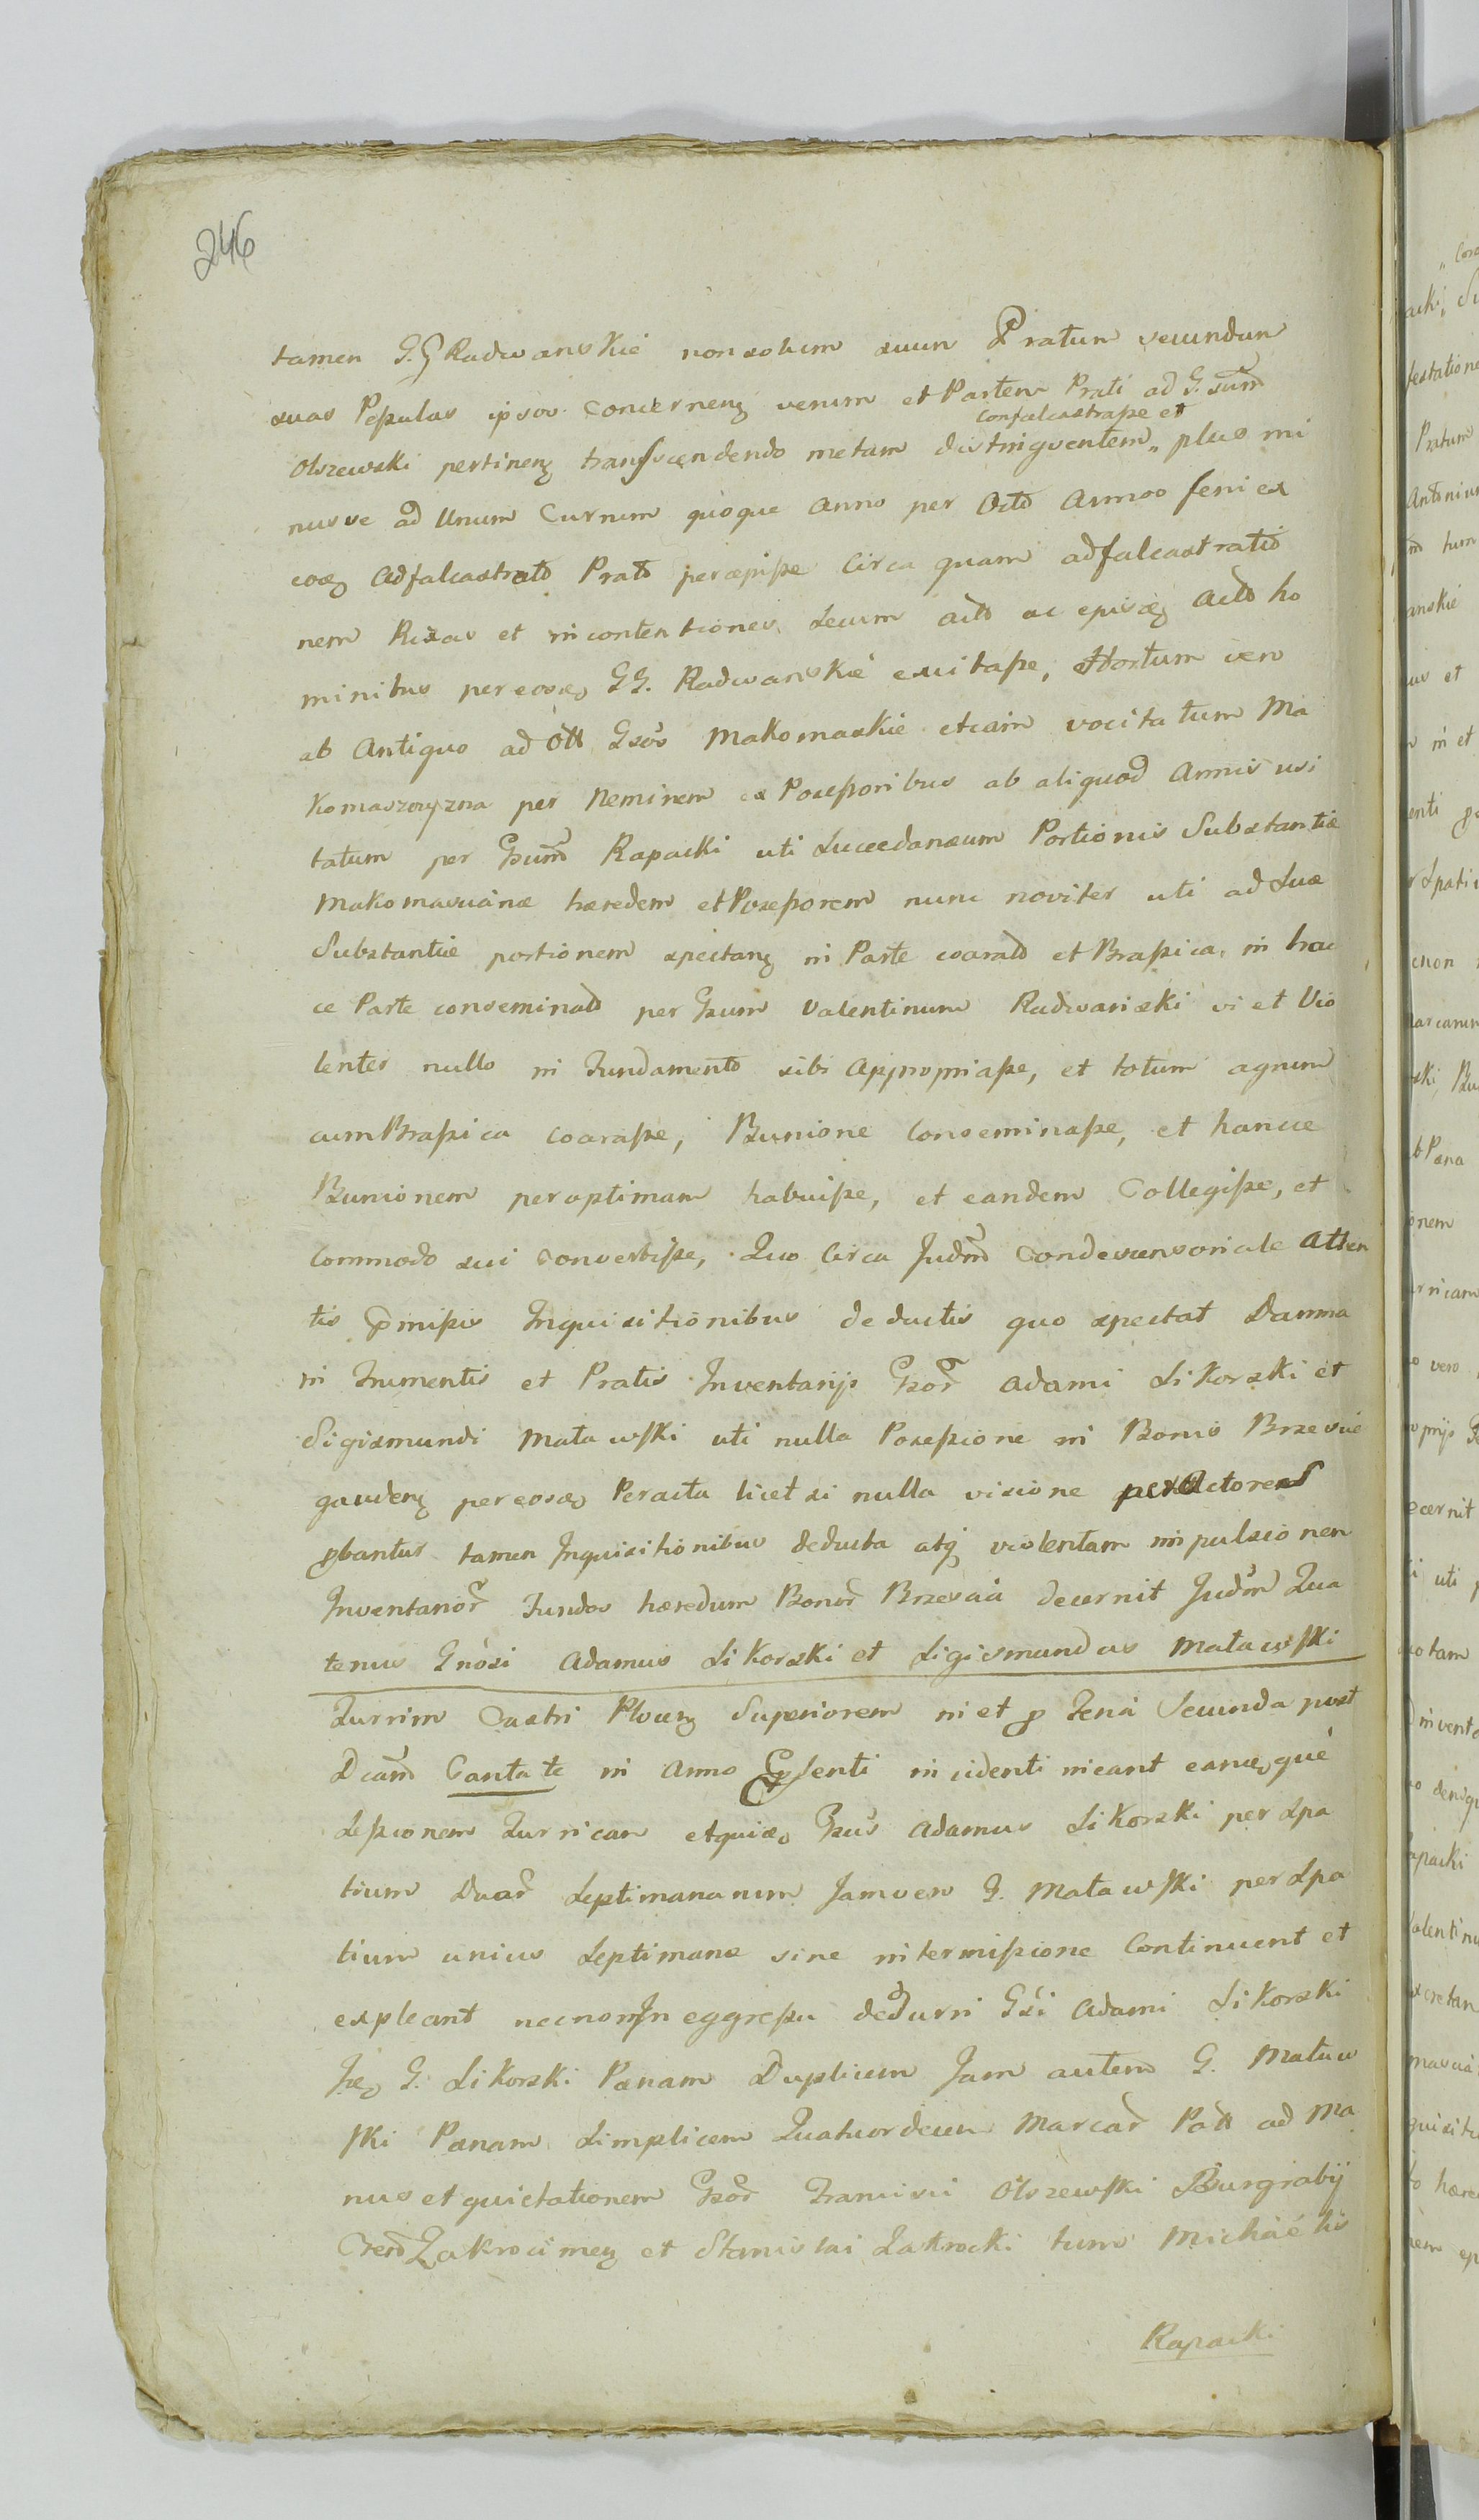 246
tamen G.G Radwanskie non solum suum Pratum secundum
suas Pepulas ipsos concernens verum et Partem Prati ad G. sum̄
confalcastrasse et
Olszewski pertinens transscendendo metam distingventem„ plus mi
nusve ad Unum Currum quoque Anno per Octo Annos feni ex
eoq Adfalcastrato Prato percepisse Circa quam adfalcastratio
nem Rixas et in contentiones secum acto ac episq acto ho
minibus per eosq GG. Radwanskie excitasse, Hortum vero
ab Antiquo ad ott Gsos Makomaskie etiam vocitatum Ma
komaszczyzna per Neminem ex Possessoribus ab aliquod Annis usi
tatum per Gsum Rapacki uti Succedanæum Portionis Substantiæ
Makomascianæ hæredem et Possessorem nunc noviter uti ad Suæ
Substantiæ portionem spectans in Parte coarato et Brassica, in hac
ce Parte conseminato per Gsum Valentinum Radwanski vi et Vio
lenter nullo in Fundamento sibi Appropriasse, et totum agrum
cum Brassica coarasse, Bunione Conseminasse, et hancce
Bunionem peroptimam habuisse, et eandem Collegisse, et
Commodo sui Convertisse, Quo Circa Judm Condescensoriale Atten
tis pmissis Inquisitionibus deductis quo spectat Damna
in Frumentis et Pratis Inventarijs Gsor Adami Sikorski et
Sigismundi Matawski uti nulla Possessione in Bonis Brzescie
gaudens per eosq Peracta licet si nulla visione per Actores
pbantur tamen Inquisitionibus deducta atq violentam impulsionem
Inventarior Fundos hæredum Bonor Brzescia decernit Judm Qua
tenus Gnosi Adamus Sikorski et Sigismundus Matawski
Turrim Castri Plocens Superiorem in et p Feria Secunda post
Dcam Cantate in Anno psenti incidenti ineant eamq que
Sessionem Turricam etquidq Gsus Adamus Sikorski per Spa
tium Duar Septimanarum Jamvero G. Matawski per Spa
tium unius Septimanæ sine intermissione Continuent et
expleant necnon In eggressu de Turri Gsi Adami Sikorski
Ipse G. Sikorski Pœnam Duplicem Jam autem G. Mataw
ski Pœnam Simplicem Quatuordecim Marcar Poll ad Ma
nus et quietationem Gsor Francisci Olszewski Burgrabij
Zakrocimens et Stanislai Zakrocki tum Michaelis
Rapacki